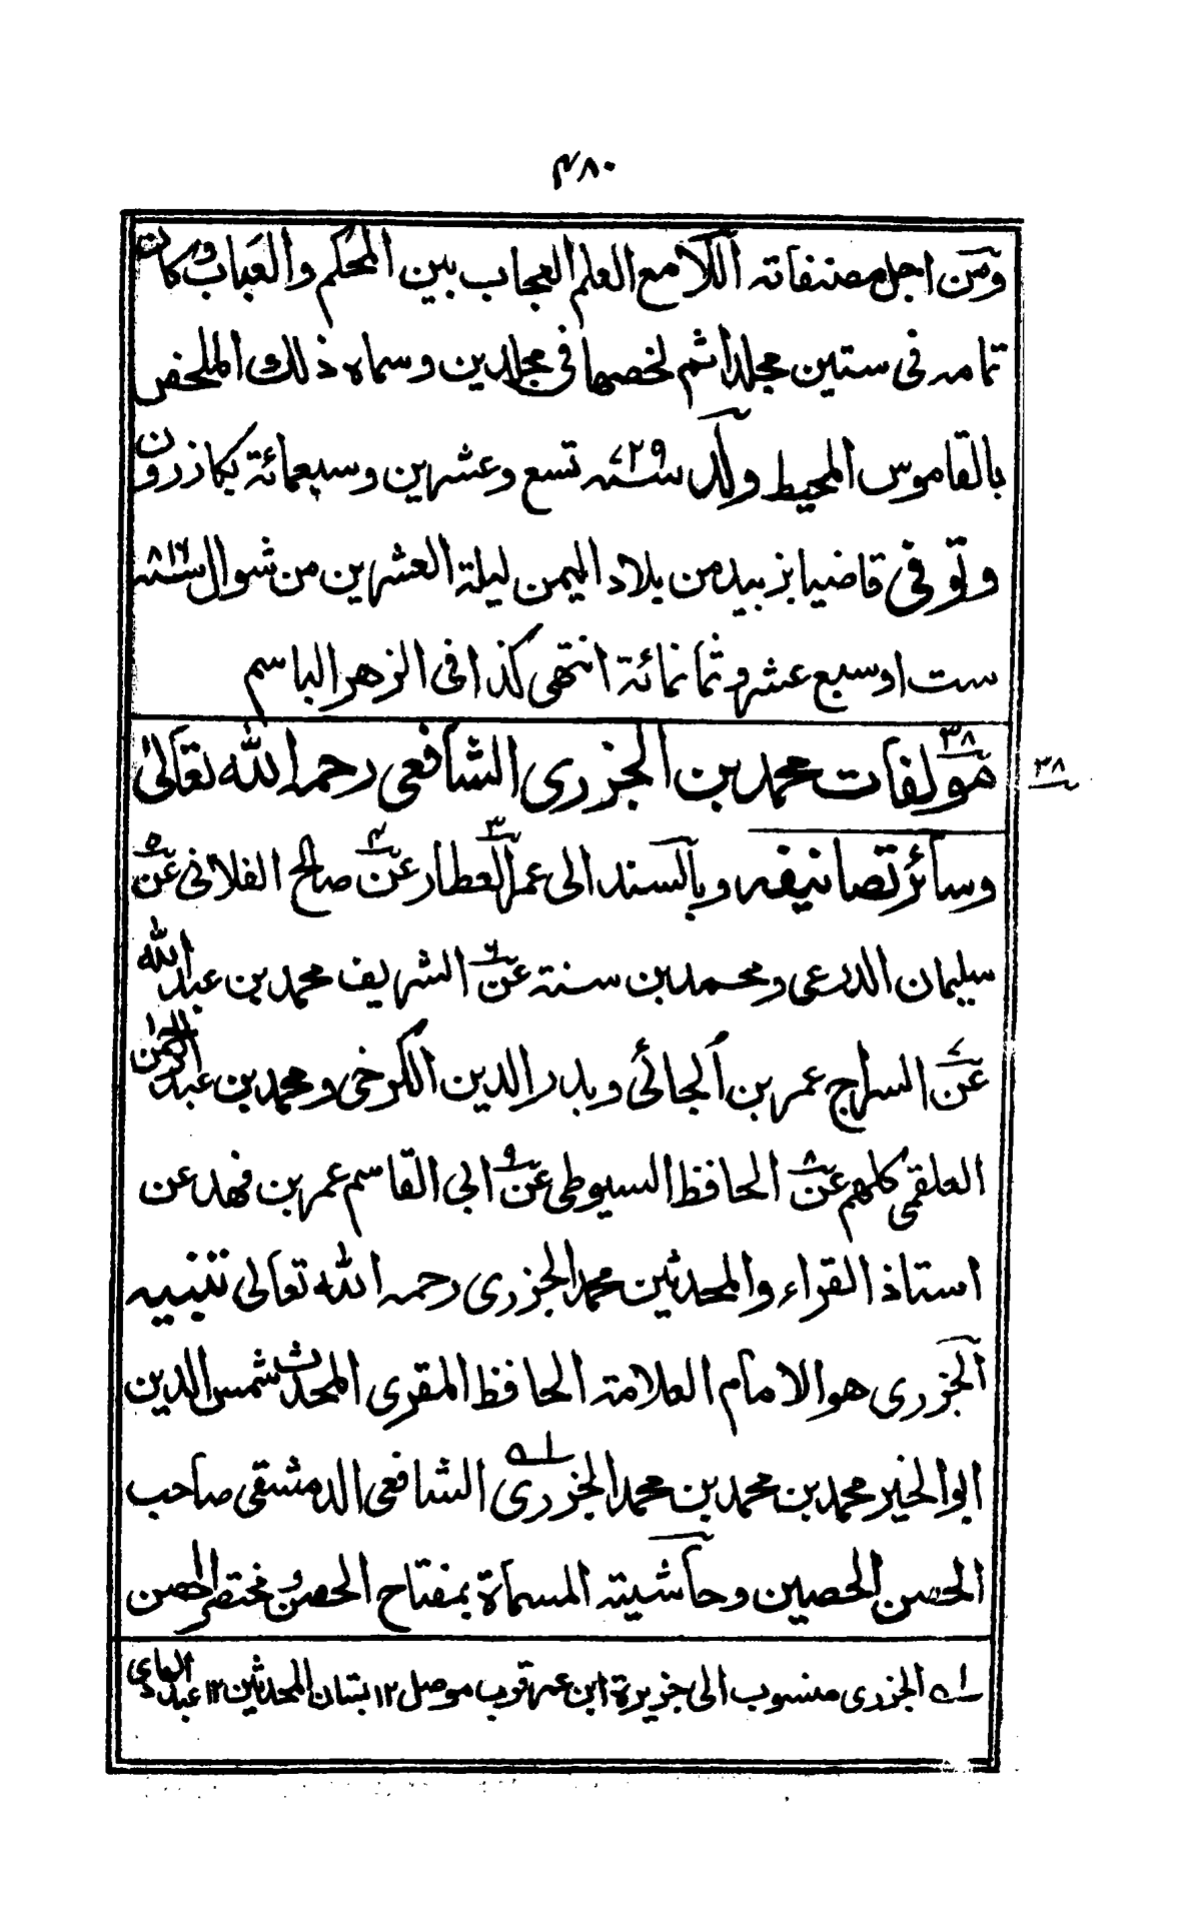 ٤٨٠
ومن اجل مصنفاته اللامع العلم العجاب بين المحكم والعباب وكان
تمامه فى ستين مجلدا ثم لخصها فى مجلدين وسماه ذلك الملخص
بالقاموس المحيط ولد سنة ٧٢٩ تسع وعشرين وسبعمائة بكازرون
وتوفى قاضيا بزبيد من بلاد اليمن ليلة العشرين من شوال سنة ٨١٦
ست اوسبع عشر وثمانمائة انتهى كذا فى الزهر الباسم
٣٨ مؤلفات محمد بن الجزرى الشافعى رحمه الله تعالى ٣٨
وسائر تصانيفه وبالسند الى عمر العطار ٣ عن ٤ صالح الفلانى عن ٥
سليمان الدرعى ومحمد بن سنة عن ٦ الشريف محمد بن عبد الله
عن ٧ السراج عمر بن الجائى وبدر الدين الكرخى ومحمد بن عبد الرحمن
العلقمى كلهم عن ٨ الحافظ السيوطى عن ٩ ابى القاسم عمر بن فهد عن
استاذ القراء والمحدثين محمد الجزرى رحمه الله تعالى تنبيه
الجزرى هو الامام العلامة الحافظ المقرى المحدث شمس الدين
ابو الخير محمد بن محمد بن محمد الجزرى ١ه الشافعى الدمشقى صاحب
الحصن الحصين وحاشيته المسماة بمفتاح الحصن ومختصر الحصن
١ه الجزرى منسوب الى جزيرة ابن عمر قرب موصل ١٢ بستان المحدثين ١٢ عبد الهادى